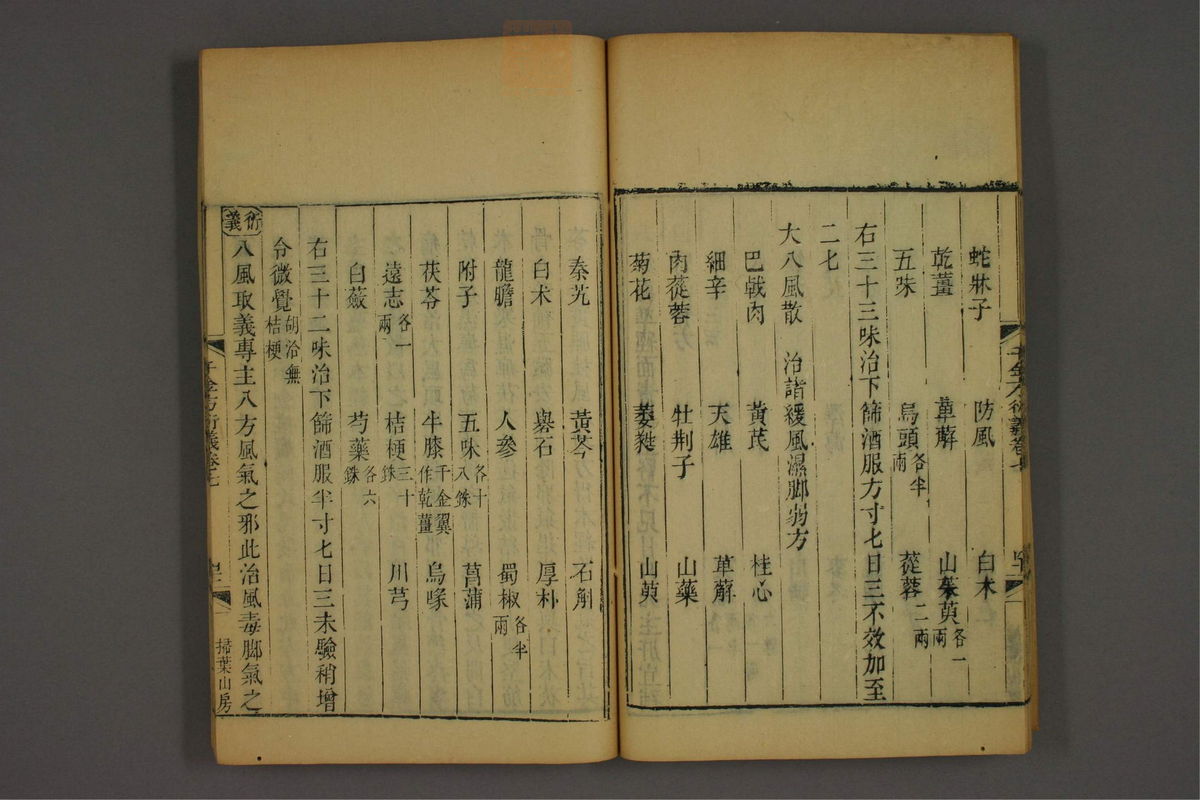 蛇牀子 防風 白木
乾薑 萆薢 山茱萸各一兩
五味 烏頭各半兩 蓯蓉二兩
右三十三味治下篩酒服方寸七日三不效加至
二七
大八風散 治諸緩風濕脚弱方
巴戟肉 黃芪 桂心
細辛 天雄 萆薢
肉蓯蓉 牡荆子 山藥
菊花 萎蕤 山萸
秦艽 黃芩 石斛
白术 礜石 厚朴
龍膽 人參 蜀椒各半兩
附子 五味各十八銖 菖蒲
茯苓 牛膝千金翼作乾薑 烏喙
遠志各一兩 桔梗三十銖 川芎
白蘞 芍藥各六銖
右三十二味治下篩酒服半寸七日三未驗稍增
令微覺胡洽無桔梗
衍義 八風取義專主八方風氣之邪此治風毒脚氣之
千金方衍義卷七
掃葉山房